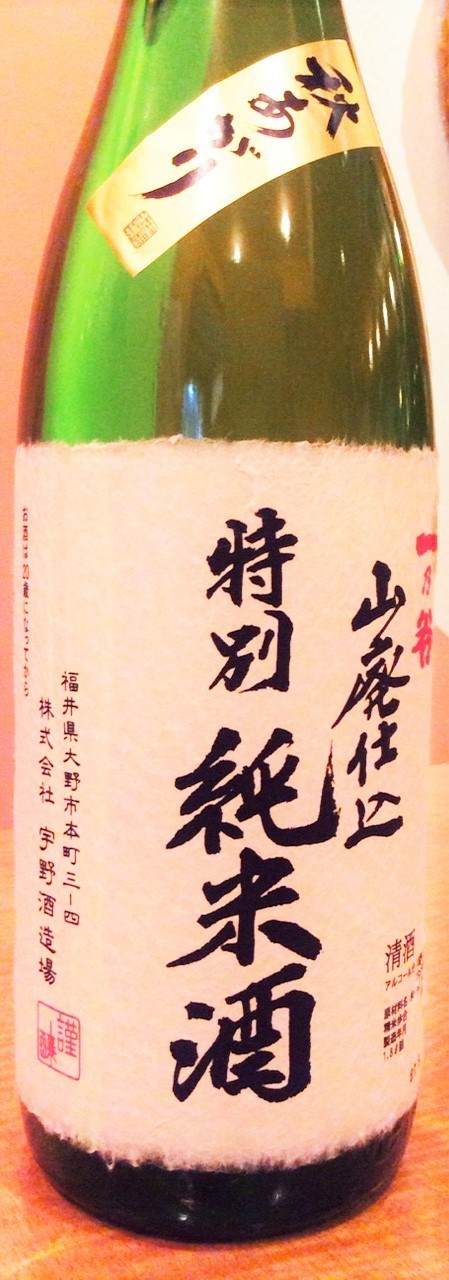 秋あがり
一乃谷
山廃仕込
特別
純米酒
清酒
アルコール分
原材料名 米
精米歩合
製造年月
1.8ℓ詰
福井県大野市本町三ー四
株式会社 宇野酒造場
お酒は20歳になってから
謹
醸